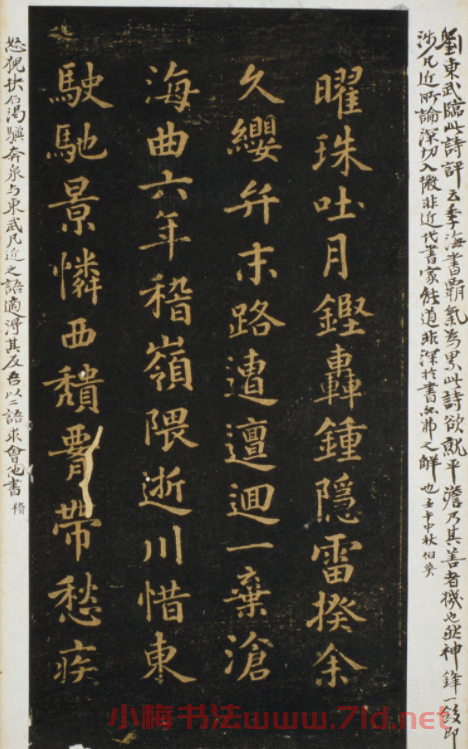 劉東武臨此詩評云季海書霸氣為累此詩欲就平澹乃其善者機也然神鋒一斂即
涉凡近所論深切入微非近代書家能道非深於書者弗之解也壬午中秋伯英
曜珠吐月鏗轟鍾隱雷揆余
久纓弁末路遭邅迴一棄滄
海曲六年稽嶺隈逝川惜東
駛馳景憐西頹腰帶愁疾
怒猊抉石渴驥奔泉與東武凡近之語適得其反吾以二語求會也書
小梅书法www.7ld.net